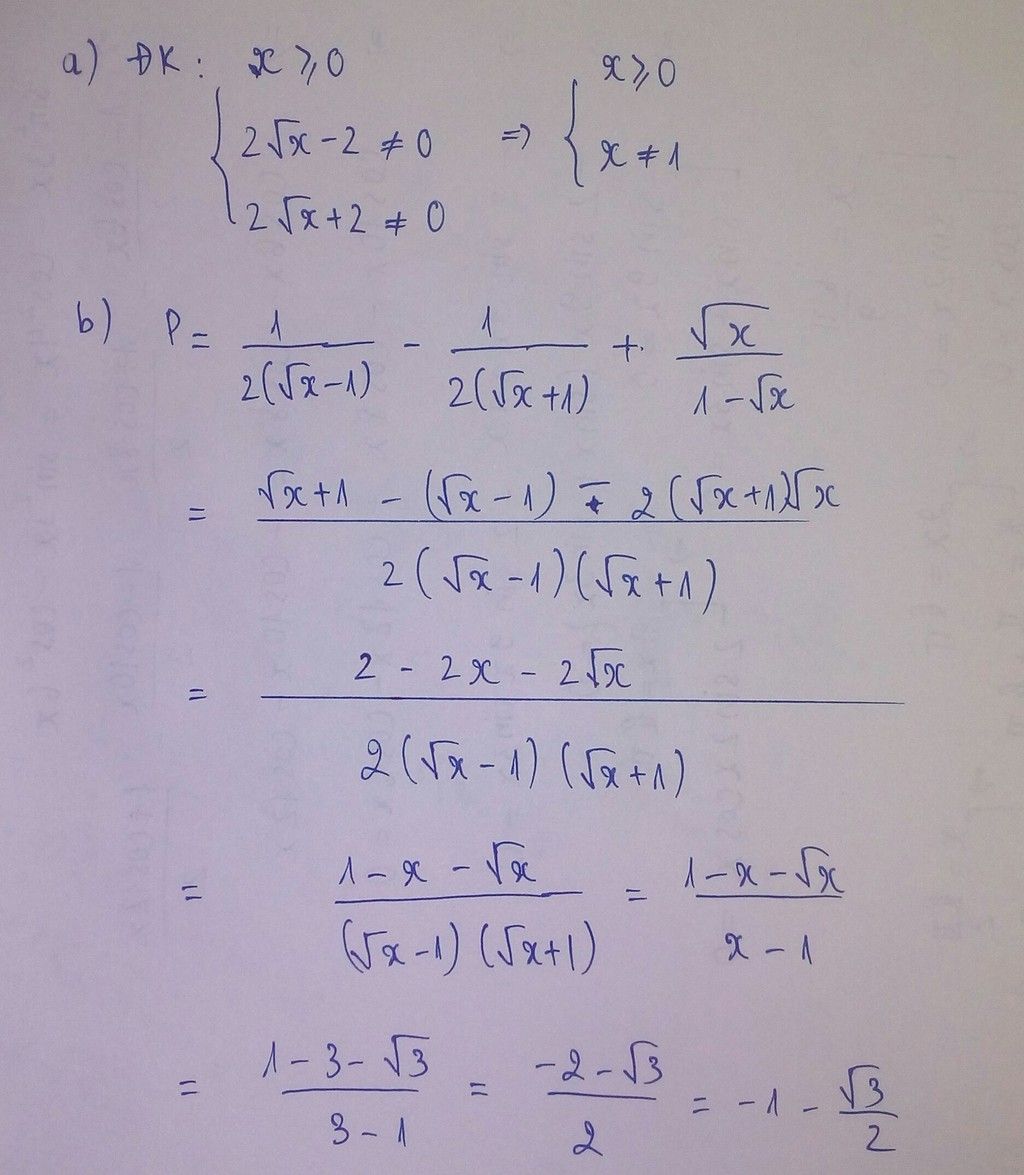 a) ĐK: x ⩾ 0 x ⩾ 0
{ 2√x - 2 ≠ 0 => { x ≠ 1
2√x + 2 ≠ 0
b) P = 1/(2(√x - 1)) - 1/(2(√x + 1)) + √x/(1 - √x)
= (√x + 1 - (√x - 1) - 2(√x + 1)√x)/(2(√x - 1)(√x + 1))
= (2 - 2x - 2√x)/(2(√x - 1)(√x + 1))
= (1 - x - √x)/((√x - 1)(√x + 1)) = (1 - x - √x)/(x - 1)
= (1 - 3 - √3)/(3 - 1) = (-2 - √3)/2 = -1 - √3/2